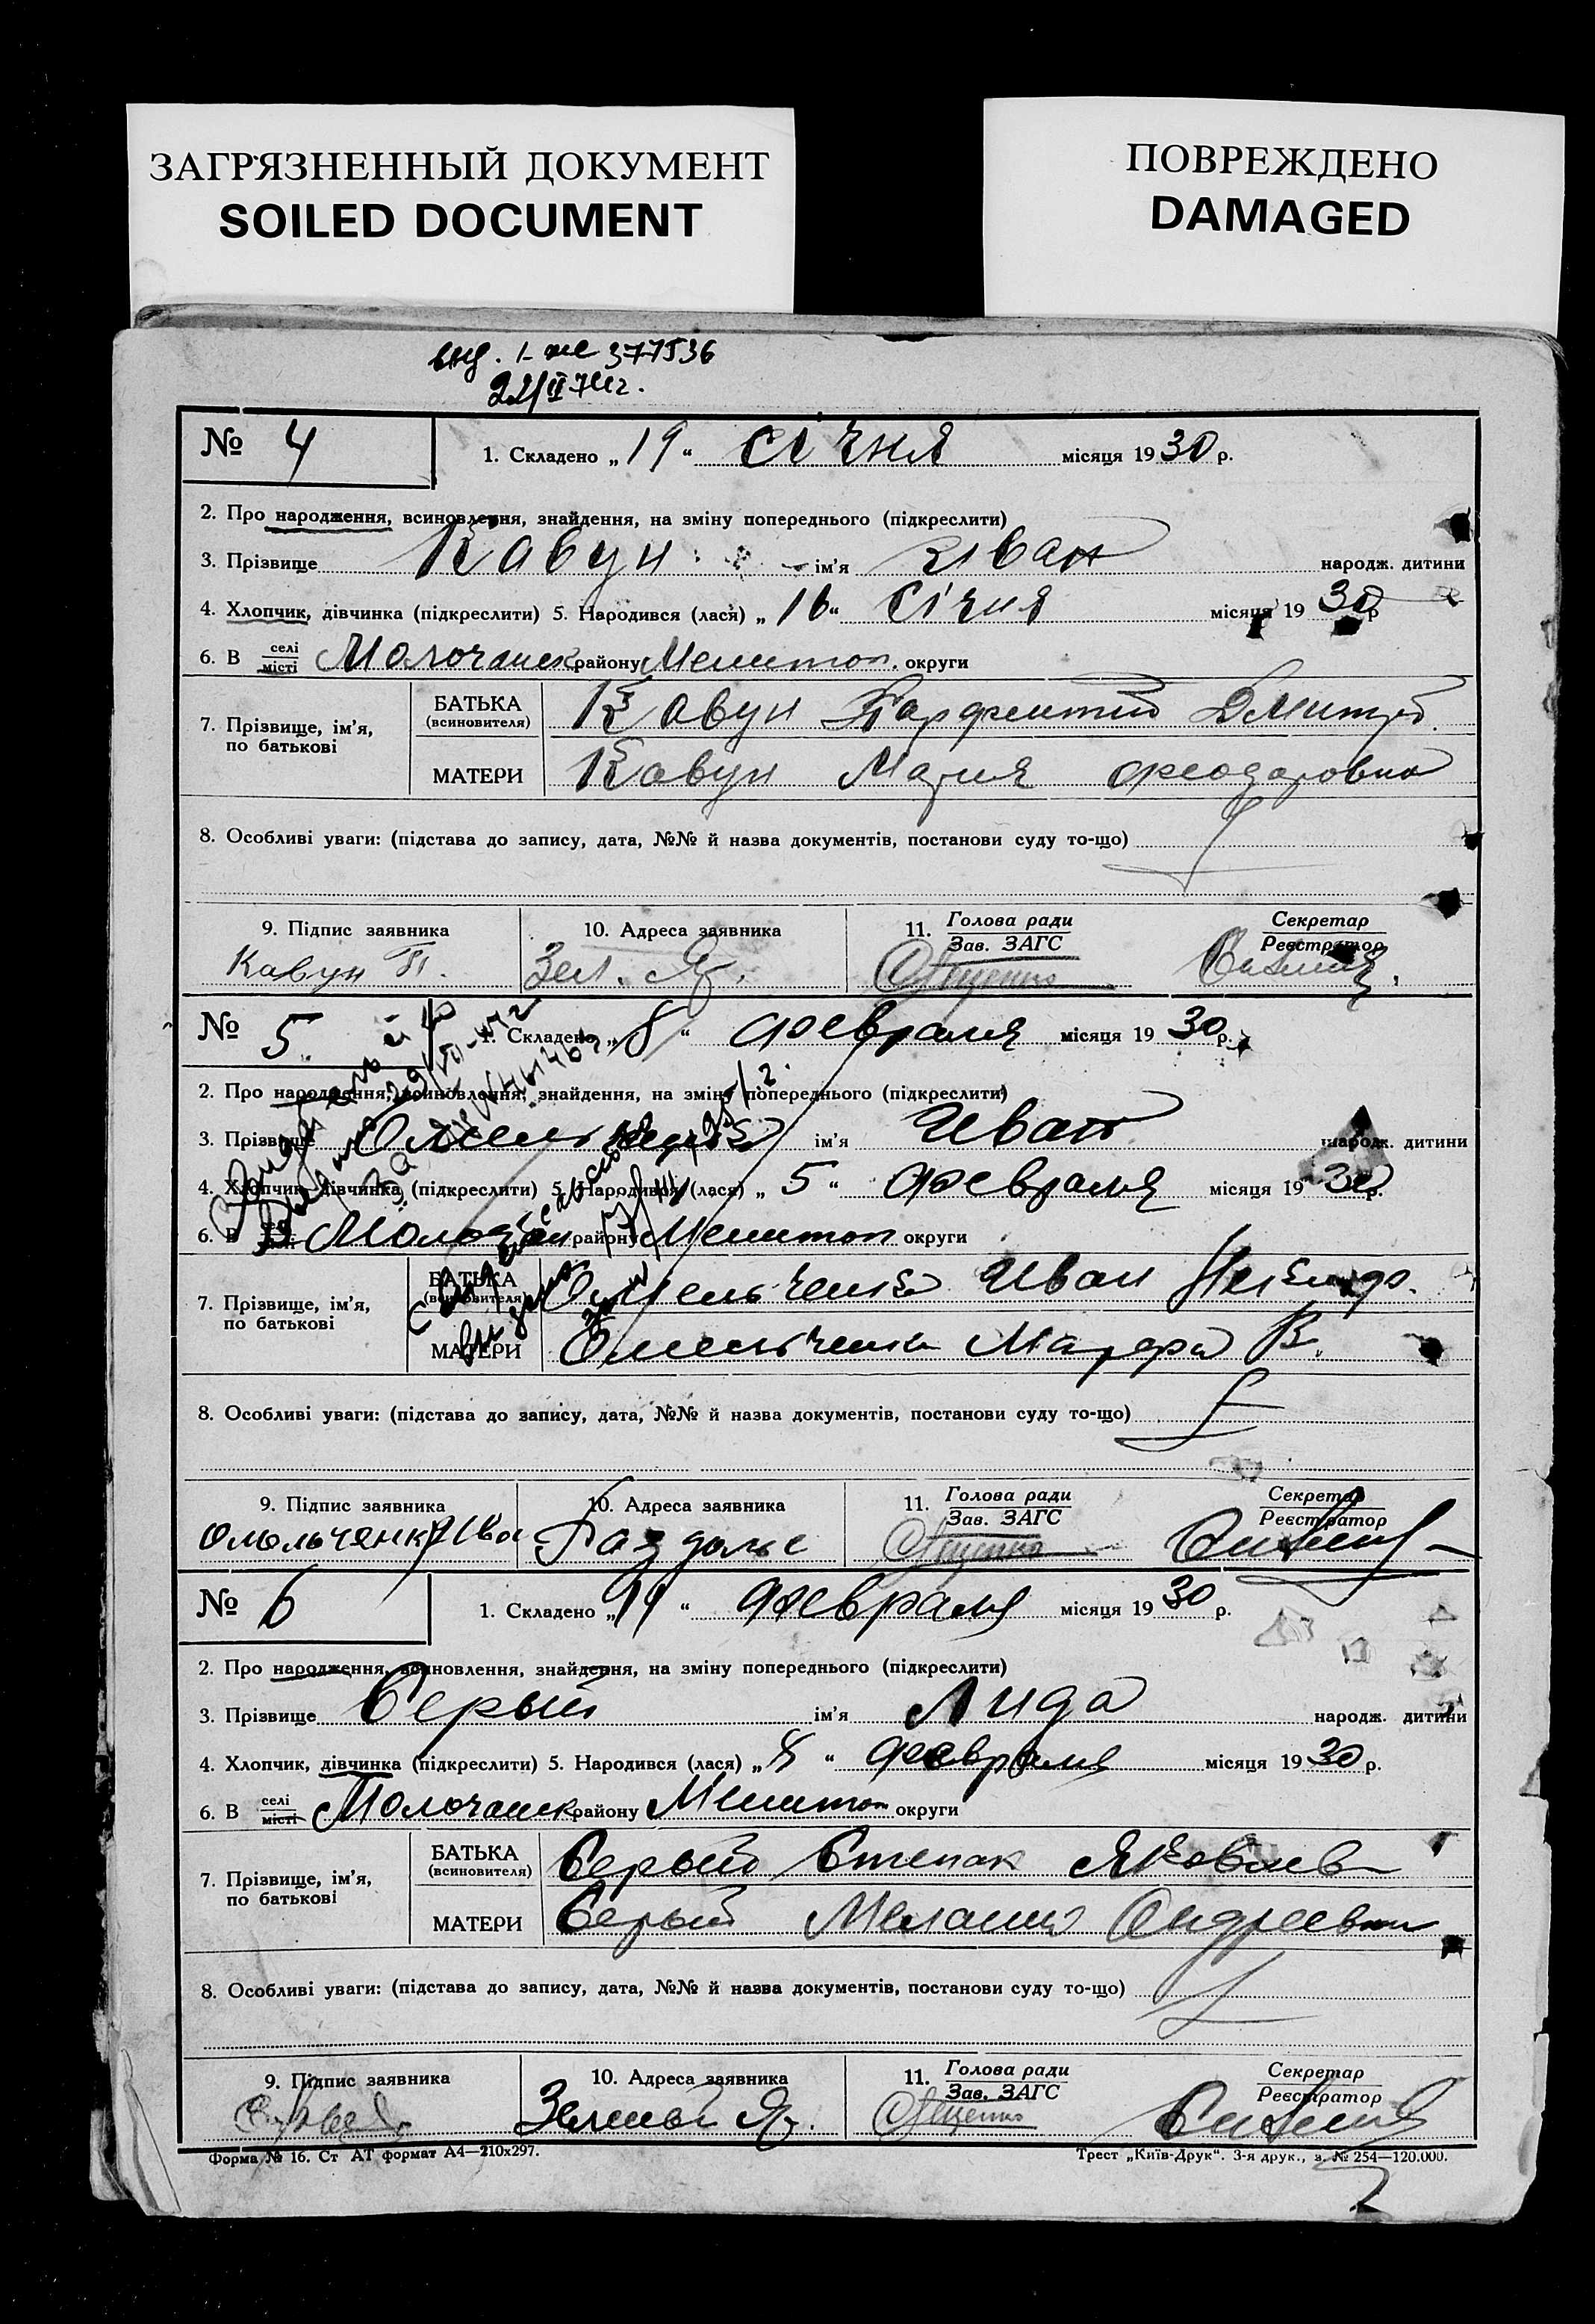 ЗАГРЯЗНЕННЫЙ ДОКУМЕНТ
SOILED DOCUMENT
ПОВРЕЖДЕНО
DAMAGED
377536
№ 4
1. Складено „19“ січня місяця 1930 р.
2. Про народження, всиновлення, знайдення, на зміну попереднього (підкреслити)
3. Прізвище Кавун ім'я Иван народж. дитини
4. Хлопчик, дівчинка (підкреслити) 5. Народився (лася) „16“ Січня місяця 1930 р
6. В селі місті Молочанск району Мелитоп. округи
7. Прізвище, ім'я, по батькові
БАТЬКА (всиновителя) Кавун Парфентий Дмитр.
МАТЕРИ Кавун Мария Феодоровна
8. Особливі уваги: (підстава до запису, дата, №№ й назва документів, постанови суду то-що)
9. Підпис заявника 10. Адреса заявника 11. Голова ради Зав. ЗАГС Секретар Реєстратор
Кавун П. Зел. Яр.
№ 5.
1. Складено „8“ февраля місяця 1930 р.
2. Про народження, всиновлення, знайдення, на зміну попереднього (підкреслити)
3. Прізвище Омельченко ім'я Иван народж. дитини
4. Хлопчик, дівчинка (підкреслити) 5. Народився (лася) „5“ февраля місяця 1930 р.
6. В Молочан району Мелитоп округи
7. Прізвище, ім'я, по батькові
БАТЬКА (всиновителя) Омельченко Иван
МАТЕРИ Омельченко Марфа В.
8. Особливі уваги: (підстава до запису, дата, №№ й назва документів, постанови суду то-що)
9. Підпис заявника 10. Адреса заявника 11. Голова ради Зав. ЗАГС Секретар Реєстратор
Омельченко Ива Раздолье
№ 6
1. Складено „11“ февраля місяця 1930 р.
2. Про народження, всиновлення, знайдення, на зміну попереднього (підкреслити)
3. Прізвище Серый ім'я Лида народж. дитини
4. Хлопчик, дівчинка (підкреслити) 5. Народився (лася) „8“ февраля місяця 1930 р.
6. В селі місті Молочанск району Мелитоп округи
7. Прізвище, ім'я, по батькові
БАТЬКА (всиновителя) Серый Степан Яковлев
МАТЕРИ Серый Мелания Андреевна
8. Особливі уваги: (підстава до запису, дата, №№ й назва документів, постанови суду то-що)
9. Підпис заявника 10. Адреса заявника 11. Голова ради Зав. ЗАГС Секретар Реєстратор
Зеленый Яр.
Форма № 16. Ст АТ формат А4—210х297.
Трест „Київ-Друк“. 3-я друк., з. № 254—120.000.